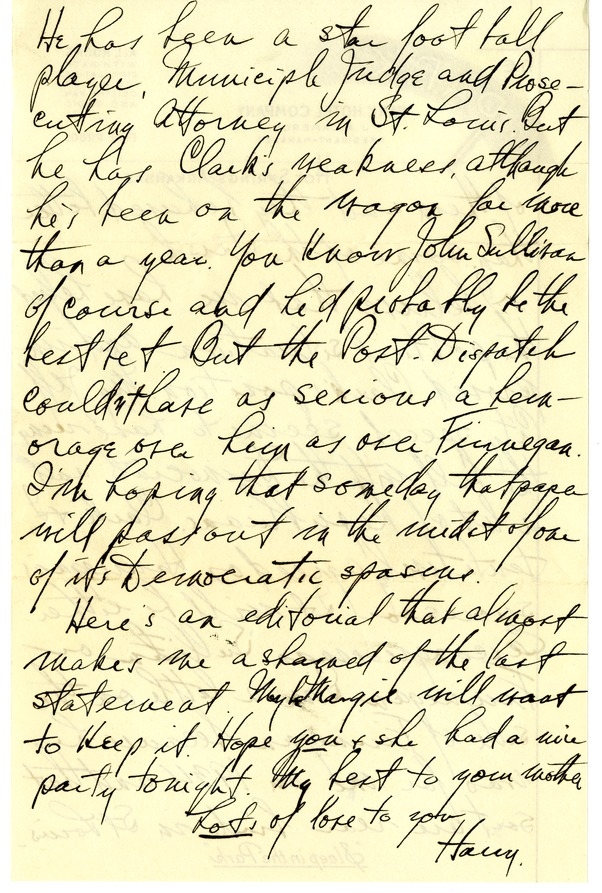 He has been a star foot ball
player, Municiple Judge and Prose-
cuting Attorney in St. Louis. But
he has Clark's weakness, although
he's been on the wagon for more
than a year. You know John Sullivan
of course and he'd probably be the
best bet But the Post-Dispatch
couldn't have as serious a hem-
orage over him as over Finnegan.
I'm hoping that someday that paper
will pass out in the midst of one
of its Democratic spasms.
Here's an editorial that almost
makes me ashamed of the last
statement. Maybe Margie will want
to keep it. Hope you & she had a nice
party tonight. My best to your mother
Lots of love to you
Harry.
Sleep in the Park